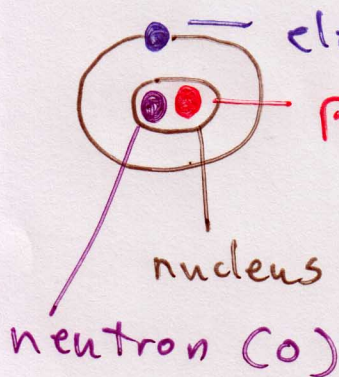 nucleus
neutron (0)